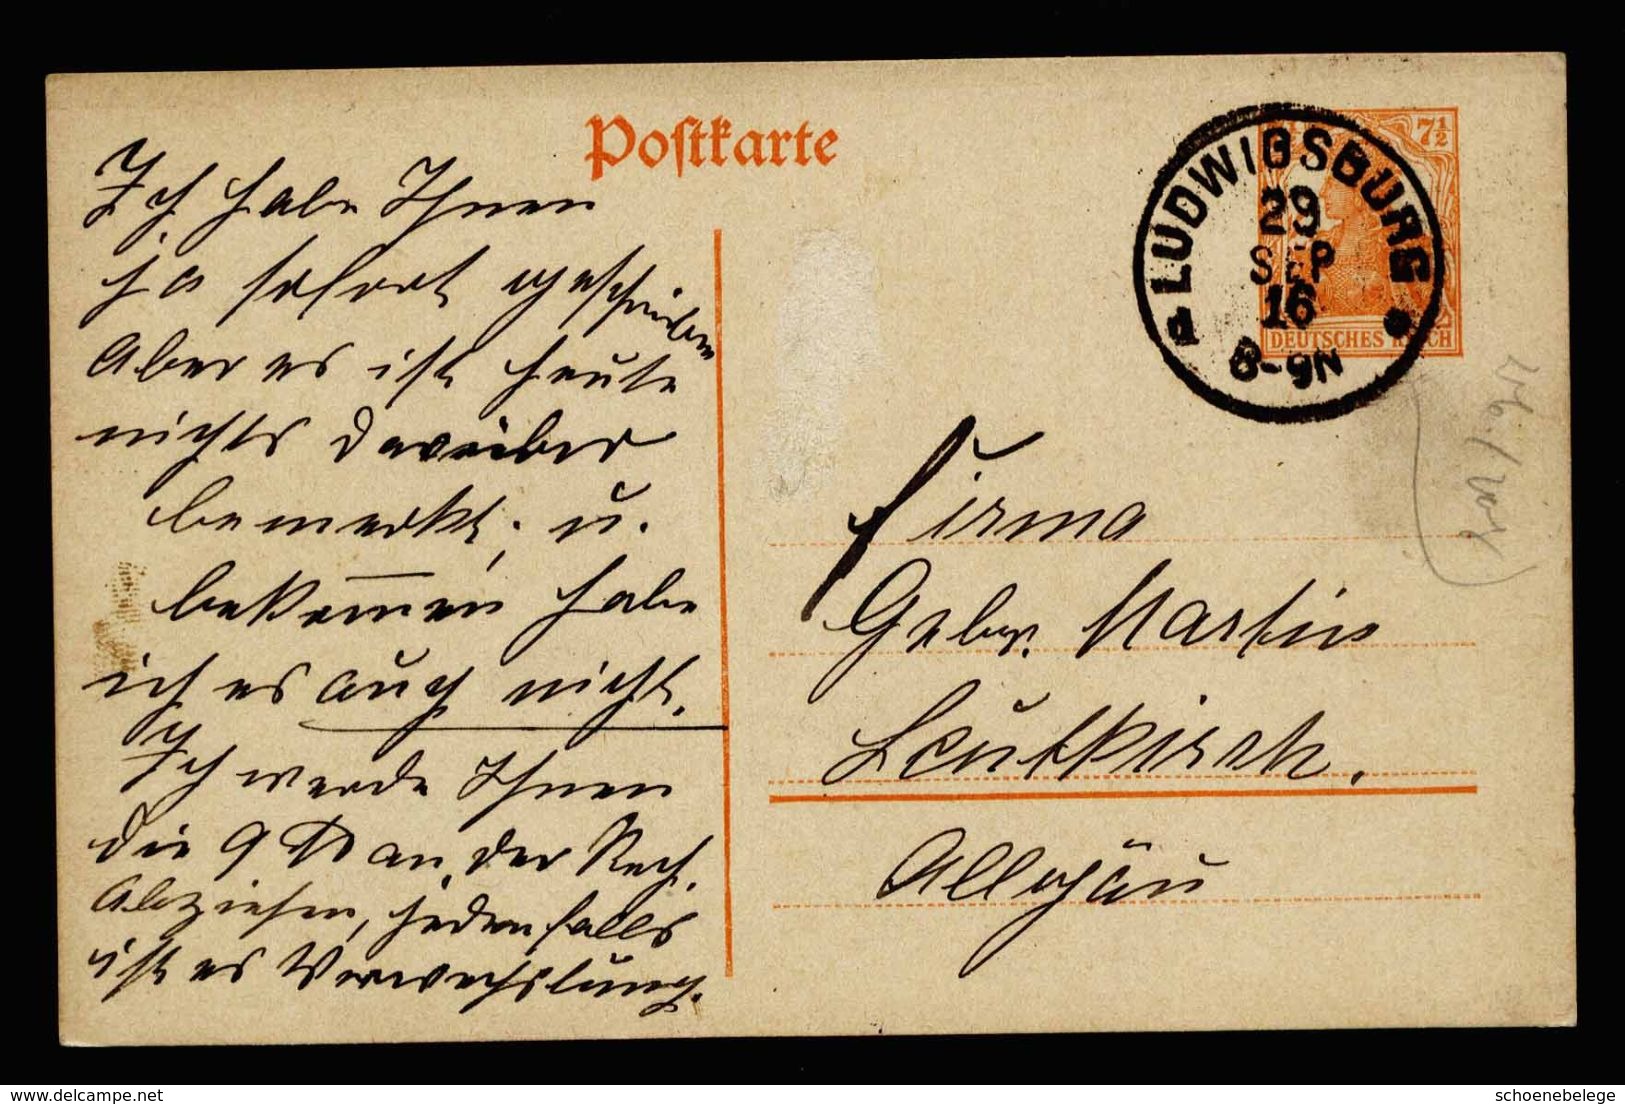 Postkarte
Ich habe Ihnen
ja sofort geschrieben
Aber es ist heute
nichts darüber
bemerkt, u.
bekommen habe
ich es auch nicht.
Ich werde Ihnen
die 9 an der Rech.
Abziehen, jedenfalls
ist es Verwechslung.
LUDWIGSBURG
29
SEP
16
8-9N
d
7½
DEUTSCHES REICH
Firma
Gebr. Martin
Leutkirch.
Allgäu
delcampe.net
schoenebelege